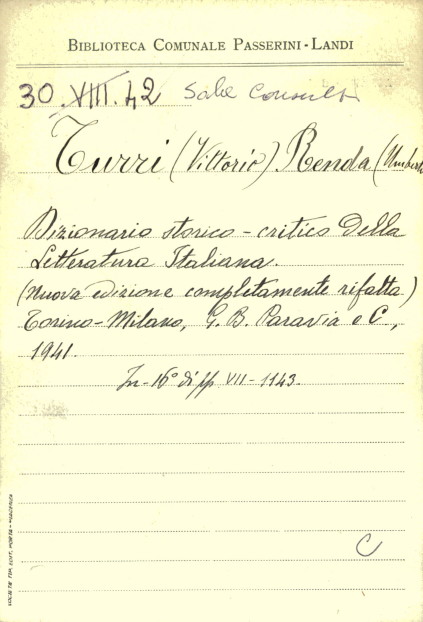 BIBLIOTECA COMUNALE PASSERINI-LANDI
30.VIII.42 Sala Consult
Turri (Vittorio) Renda (Umberto
Dizionario storico-critico della
Letteratura Italiana.
(Nuova edizione completamente rifatta)
Torino-Milano, G. B. Paravia e C.,
1941.
In-16° di pp VII-1143.
C